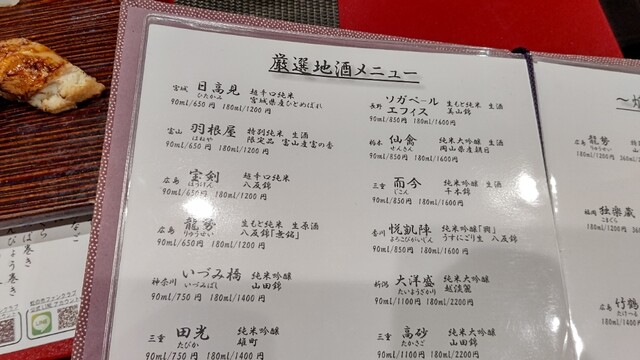 厳選地酒メニュー
宮城 日高見 超辛口純米
ひたかみ 宮城県産ひとめぼれ
90ml/650円 180ml/1200円
富山 羽根屋 特別純米 生酒
はねや 限定品 富山産富の香
90ml/650円 180ml/1200円
広島 宝剣 超辛口純米
ほうけん 八反錦
90ml/650円 180ml/1200円
広島 龍勢 生もと純米 生原酒
りゅうせい 八反錦「無銘」
90ml/650円 180ml/1200円
神奈川 いづみ橋 純米吟醸
いづみばし 山田錦
90ml/750円 180ml/1400円
三重 田光 純米吟醸
たびか 雄町
90ml/750円 180ml/1400円
長野 ソガペール 生もと純米 生酒
エフィス 美山錦
90ml/850円 180ml/1600円
栃木 仙禽 純米大吟醸 生酒
せんきん 岡山県産朝日
90ml/850円 180ml/1600円
三重 而今 純米吟醸 生酒
じこん 千本錦
90ml/850円 180ml/1600円
香川 悦凱陣 純米吟醸「興」
よろこびがいじん うすにごり生 八反錦
90ml/850円 180ml/1600円
新潟 大洋盛 純米大吟醸
たいようざかり 越淡麗
90ml/1100円 180ml/2200円
三重 高砂 純米大吟醸
たかさご 山田錦
90ml/1100円 180ml/2200円
広島 龍勢
りゅうせい
180ml/1200円
福岡 独楽蔵
こまぐら
180ml/1200円
広島 竹鶴
180ml/1400円